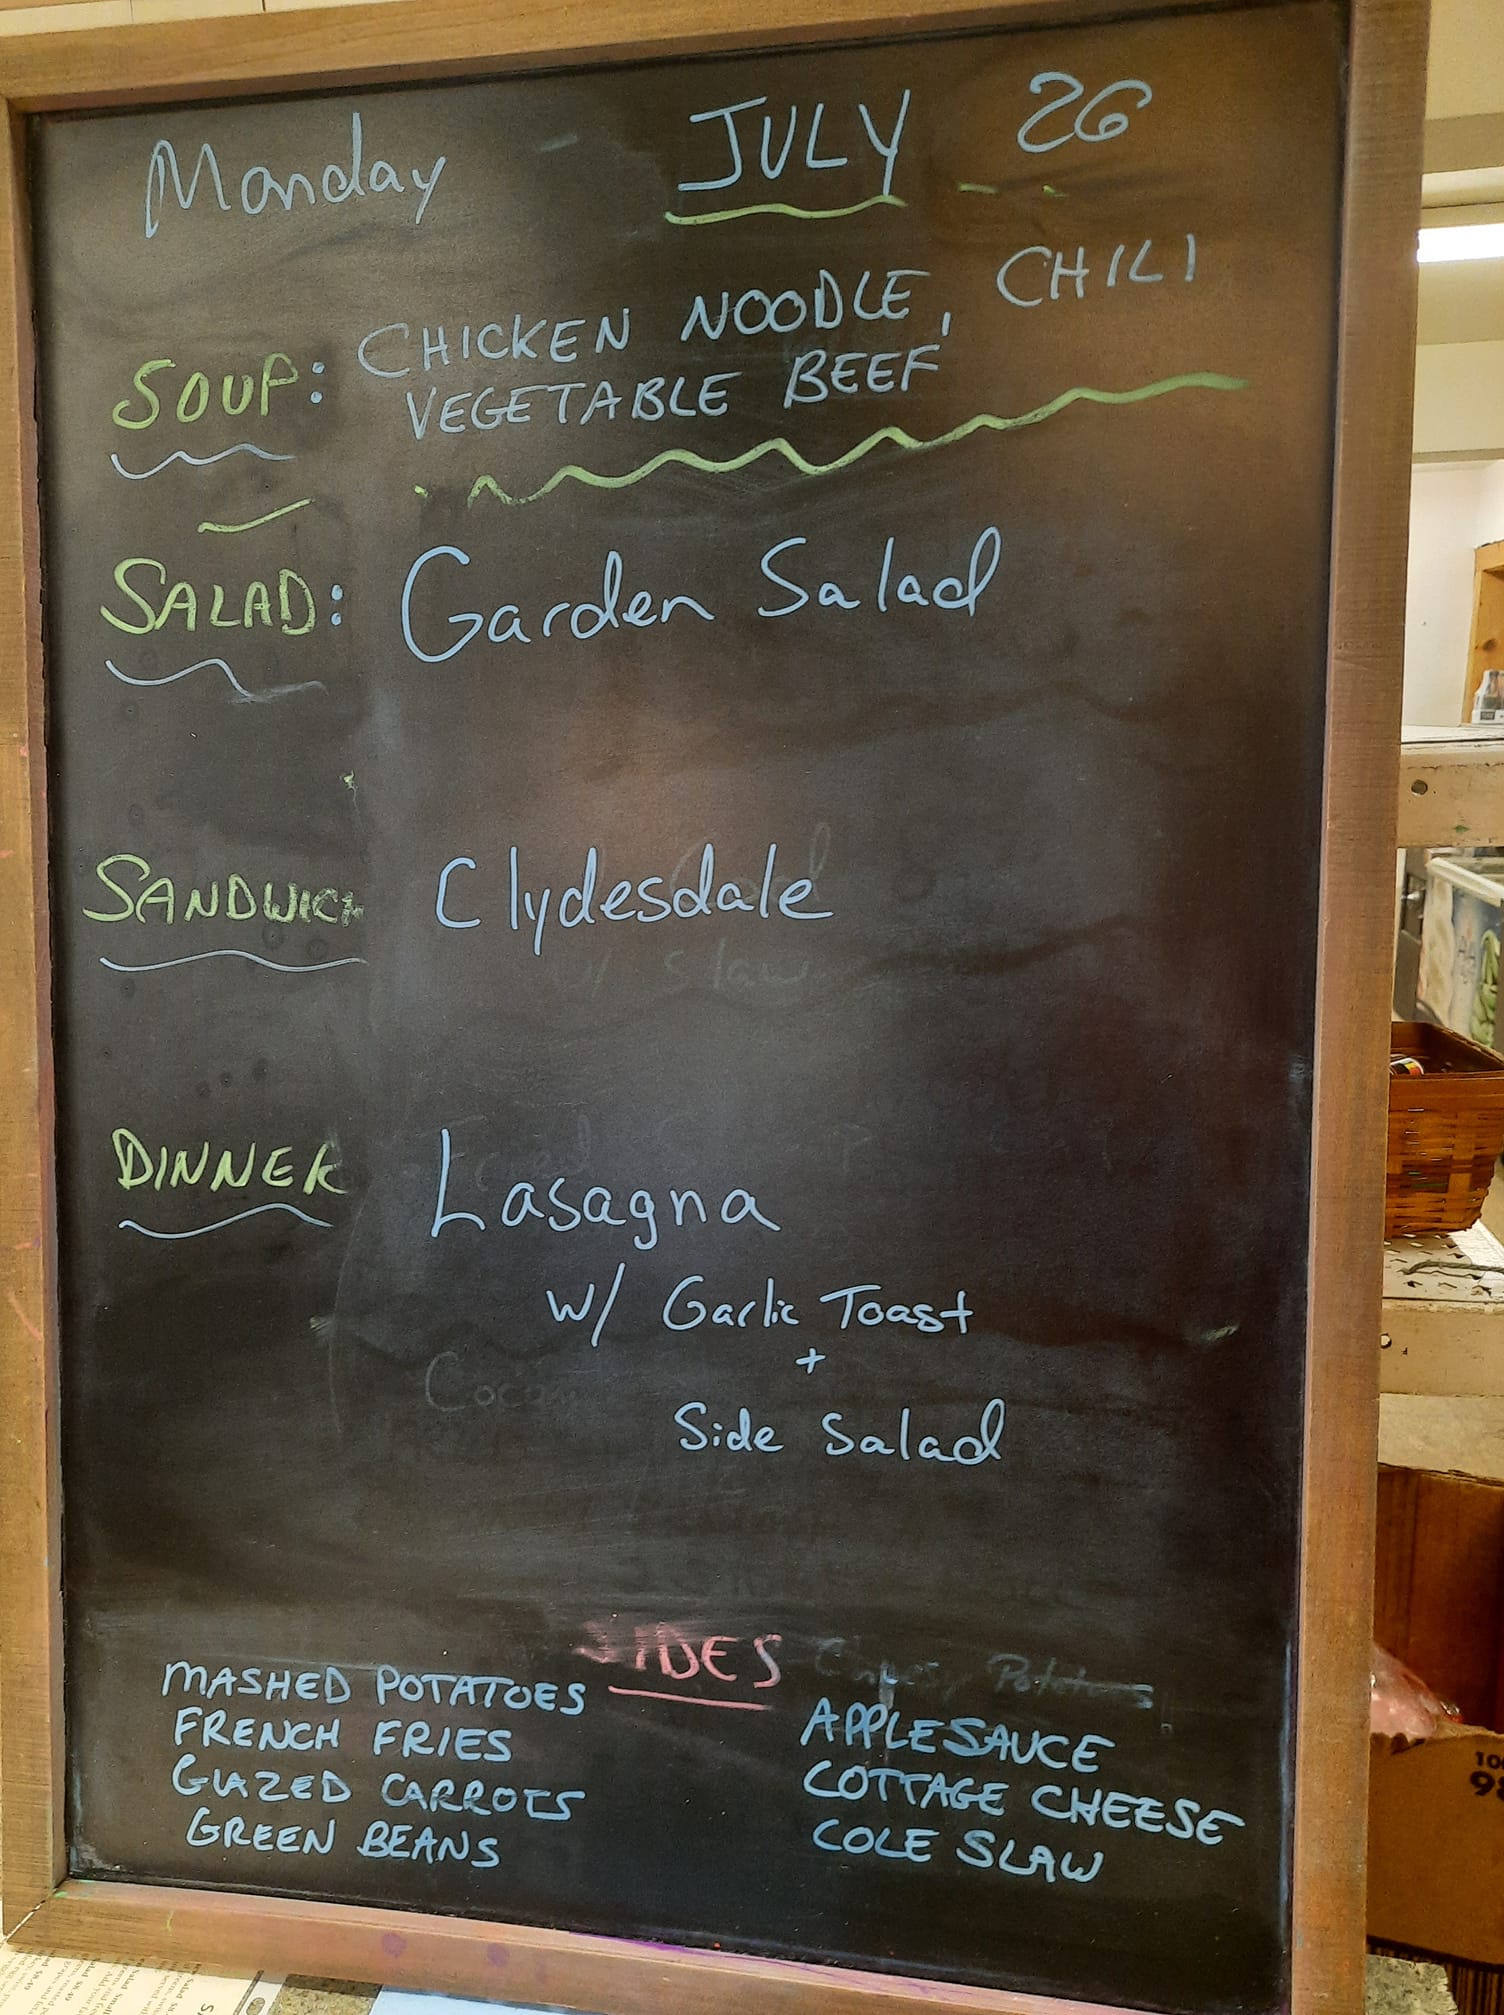 Monday JULY 26
SOUP: CHICKEN NOODLE, CHILI
VEGETABLE BEEF
SALAD: Garden Salad
SANDWICH Clydesdale
w/ Slaw
DINNER Lasagna
w/ Garlic Toast
+
Side Salad
SIDES
Cheesy Potatoes
MASHED POTATOES
FRENCH FRIES
GLAZED CARROTS
GREEN BEANS
APPLESAUCE
COTTAGE CHEESE
COLE SLAW